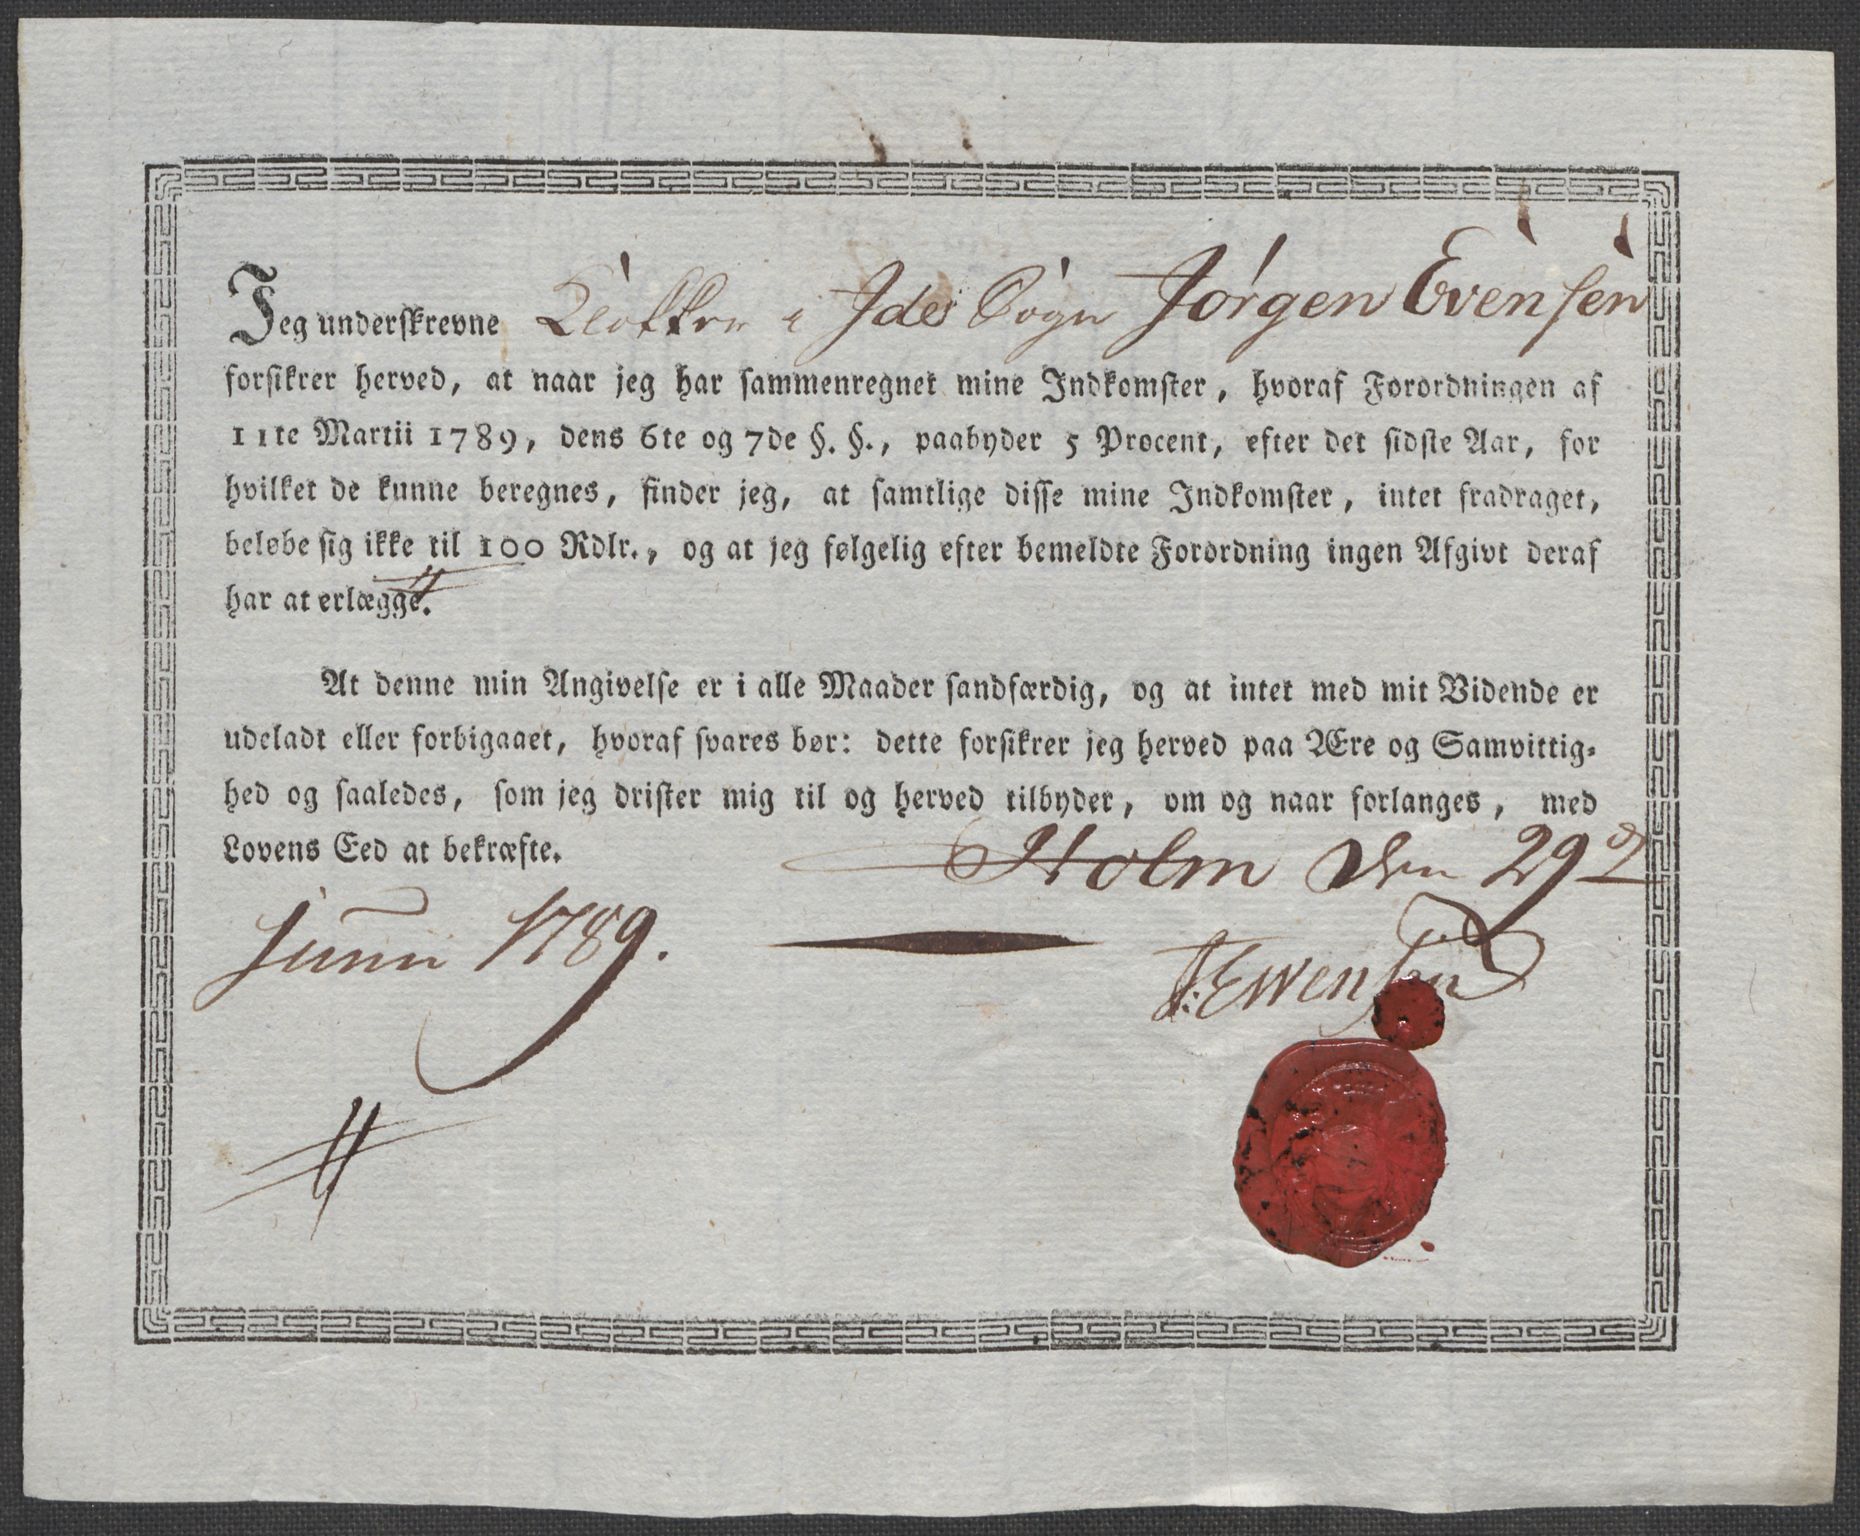 Jeg underskrevne Klokker i Ides Sogn Jørgen Evensen
forsikrer herved, at naar jeg har sammenregnet mine Indkomster, hvoraf Forordningen af
11te Martii 1789, dens 6te og 7de §. §., paabyder 5 Procent, efter det sidste Aar, for
hvilket de kunne beregnes, finder jeg, at samtlige disse mine Indkomster, intet fradraget,
beløbe sig ikke til 100 Rdlr., og at jeg følgelig efter bemeldte Forordning ingen Afgivt deraf
har at erlægge.
At denne min Angivelse er i alle Maader sandfærdig, og at intet med mit Vidende er
udeladt eller forbigaaet, hvoraf svares bør: dette forsikrer jeg herved paa Ære og Samvittig-
hed og saaledes, som jeg drister mig til og herved tilbyder, om og naar forlanges, med
Lovens Eed at bekræfte. Holm den 29d
Junii 1789.
J: Ewensen